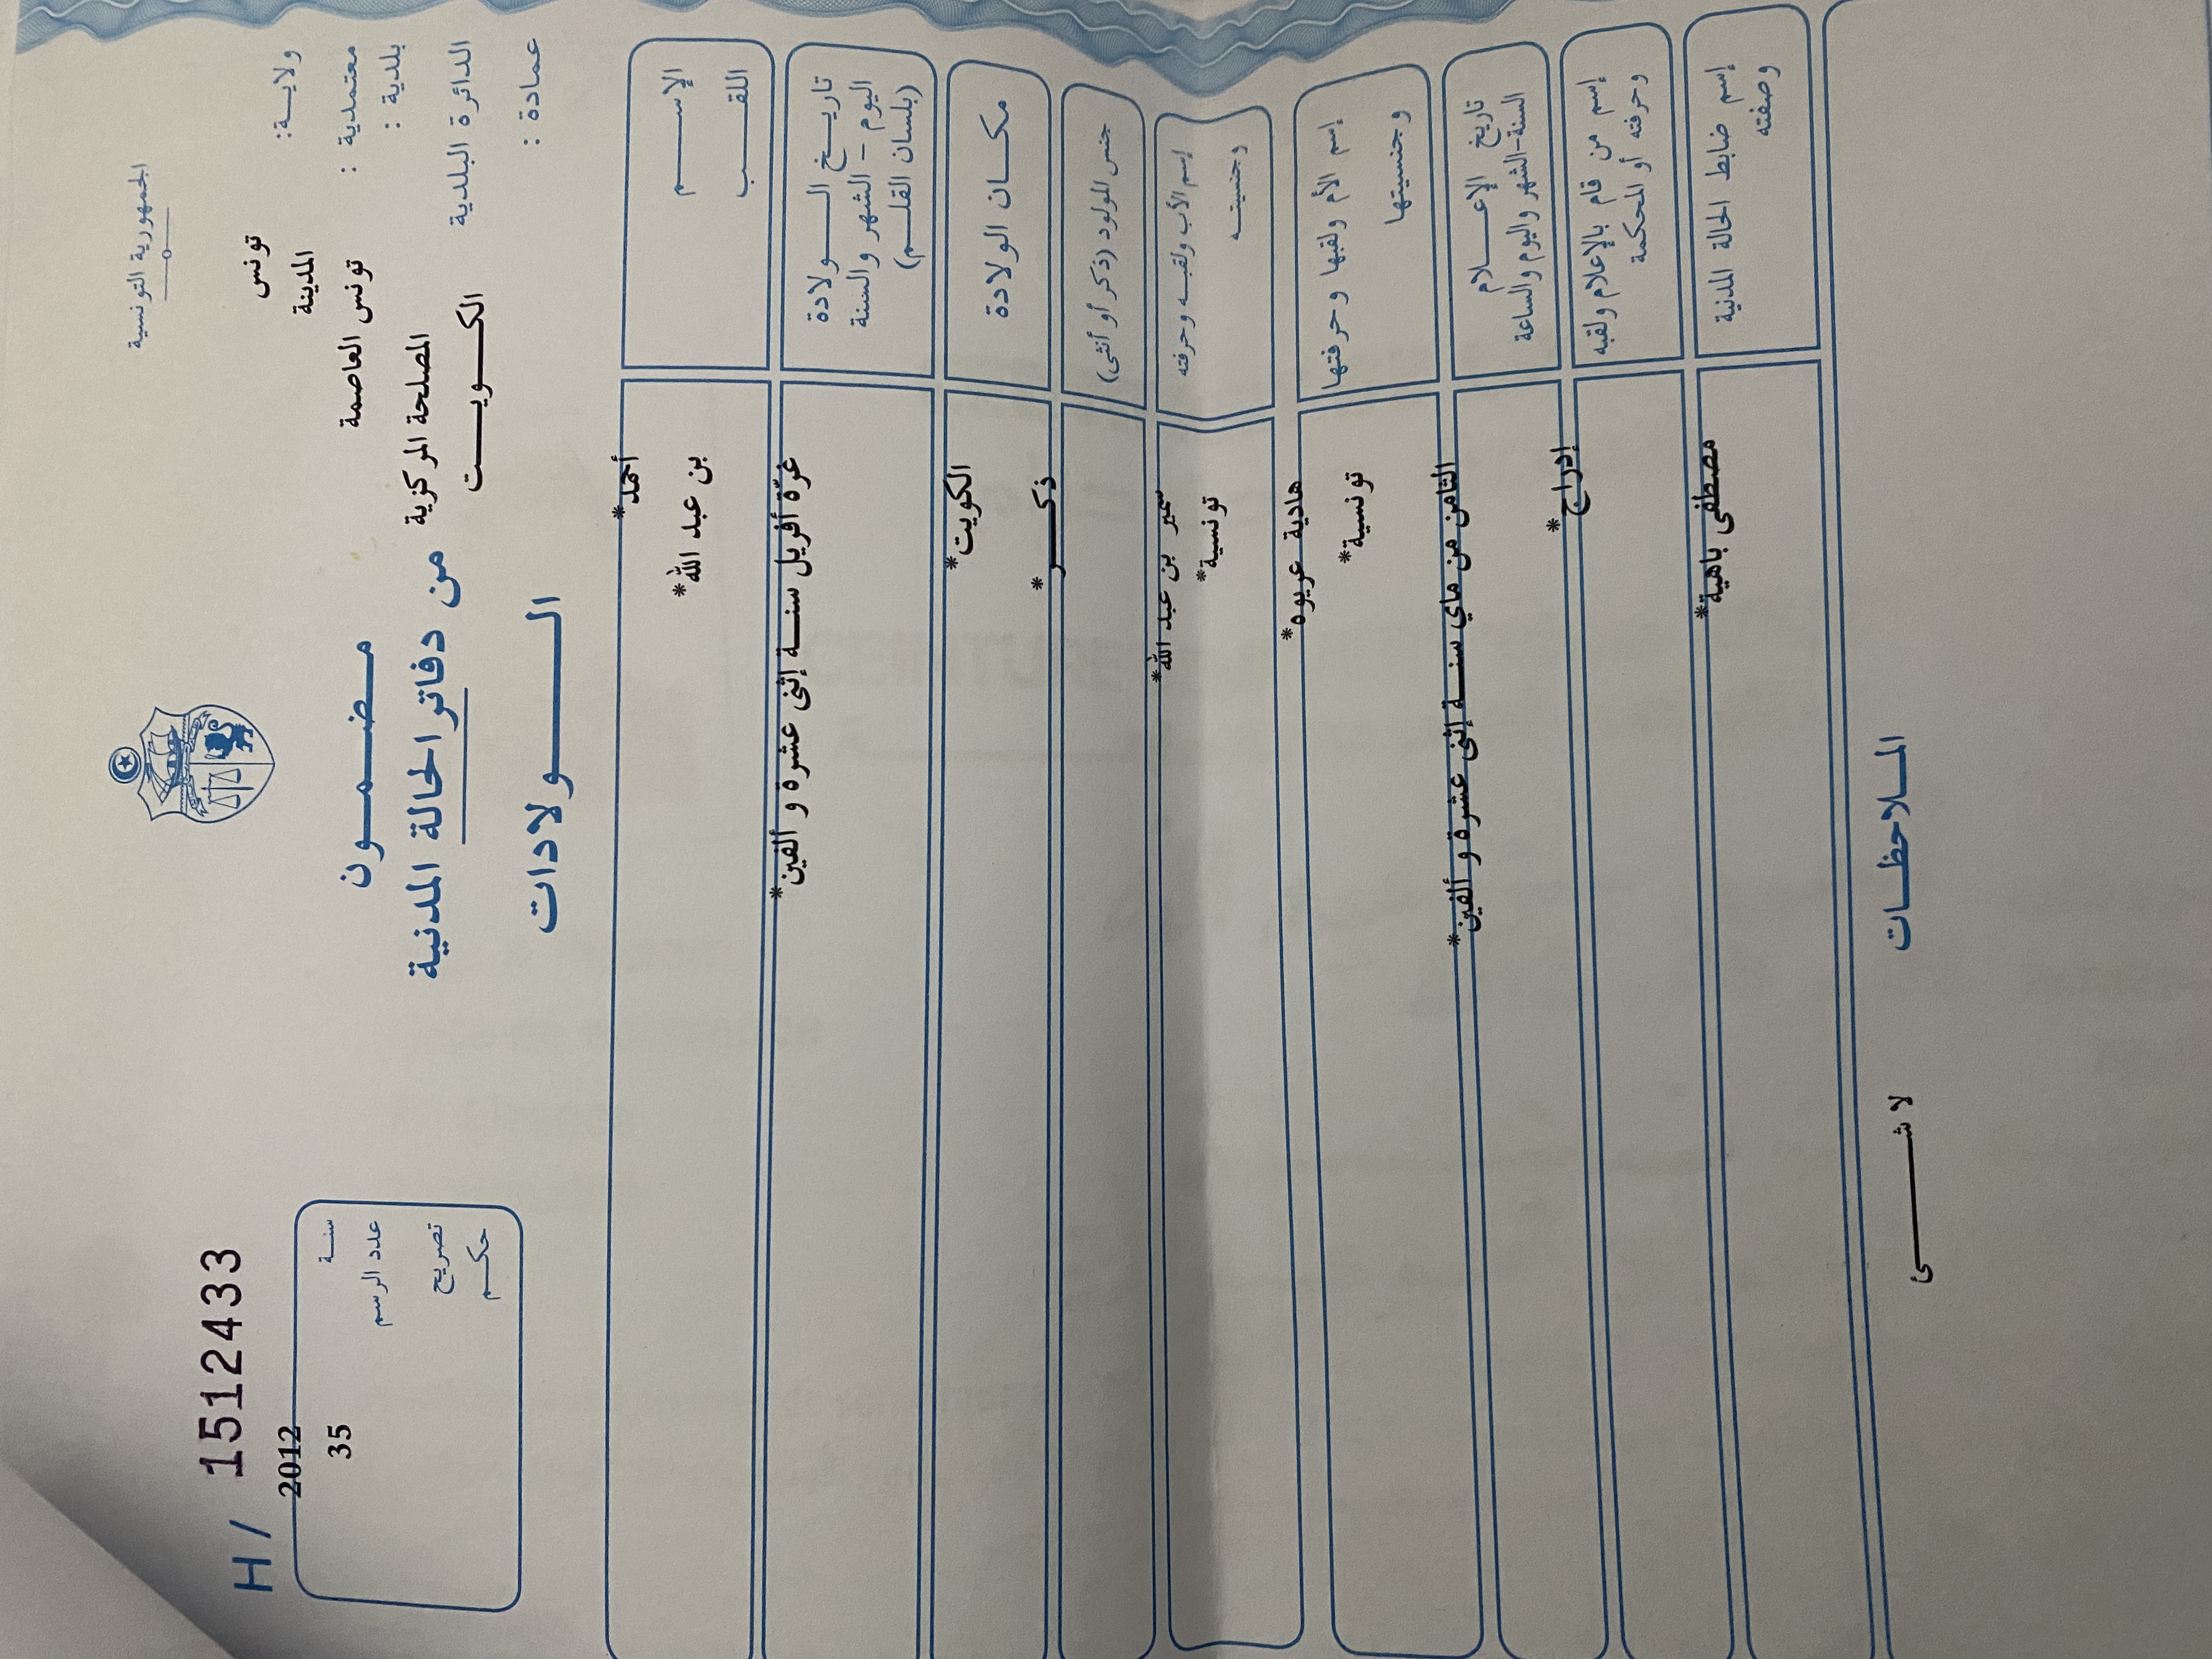 الجمهورية التونسية
ولايـــة: تونس
معتمدية : المدينة
بلدية : تونس العاصمة
الدائرة البلدية المصلحة المركزية
عمادة : الكـــويـــت
H/ 15124 33
سنـــة 2012
عدد الرسم 35
تصريح
حكــم
مـضـمـــون
من دفاتر الحالة المدنية
الـــولادات
الإســـــم أحمد*
اللقـــــب بن عبد الله*
تاريـــخ الـــولادة
اليوم - الشهر والسنة
(بلسان القلـــم)
غرّة أفريل سنـــة إثنى عشرة و ألفين*
مكـــان الولادة
الكويت*
جنس المولود (ذكر أو أنثى)
ذكـــر*
إسم الأب ولقبـــه وحرفته
وجنسيتـــه
سمير بن عبد الله*
تونسية*
إسم الأم ولقبها وحرفتها
وجنسيتها
هادية عريوه*
تونسية*
تاريخ الإعـــلام
السنة-الشهر واليوم والساعة
الثامن من ماي سنـــة إثنى عشرة و ألفين*
إسم من قام بالإعلام ولقبه
وحرفته أو المحكمة
إدراج*
إسم ضابط الحالة المدنية
وصفته
مصطفى باهية*
المـــلاحظـــات
لا شـــــئ